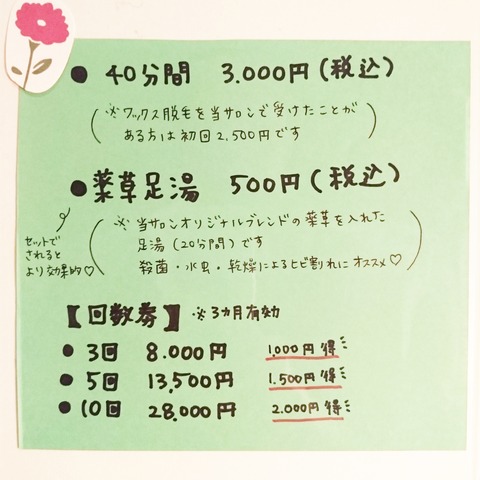 ● 40分間 3.000円(税込)
(※ワックス脱毛を当サロンで受けたことが
ある方は初回2,500円です)
●薬草足湯 500円(税込)
セットで
されると
より効果的♡
(※ 当サロンオリジナルブレンドの薬草を入れた
足湯(20分間)です
殺菌・水虫・乾燥によるヒビ割れにオススメ♡)
【回数券】※3ヵ月有効
● 3回 8.000円 1,000円得
● 5回 13,500円 1.500円得
● 10回 28,000円 2.000円得